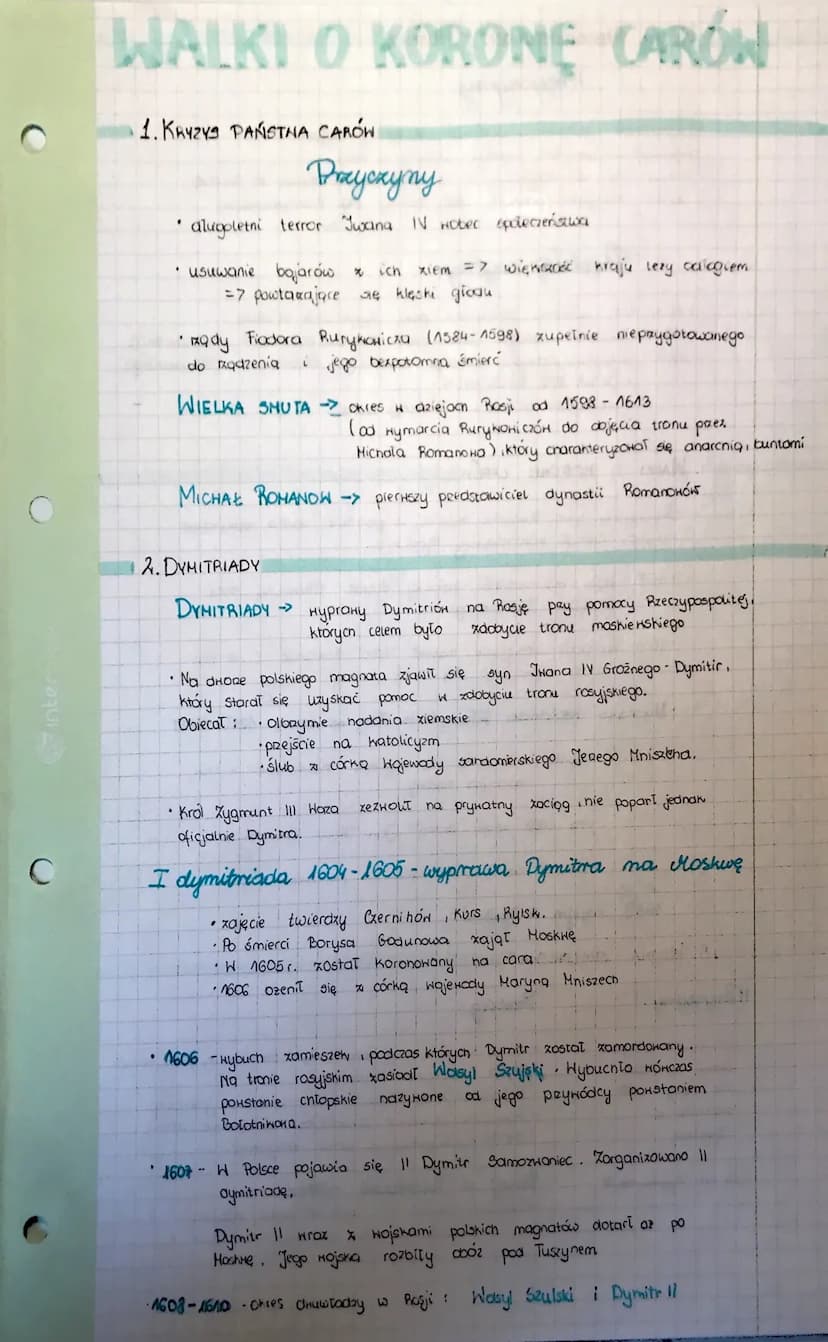 WALKI O KORONĘ CARÓW
1. KRYZYS PAŃSTWA CARÓW
Przyczyny
• długoletni terror Iwana IV wobec społeczeństwa
• usuwanie bojarów z ich ziem => większość kraju leży odłogiem
=> powtarzające się klęski głodu
• rządy Fiodora Rurykowicza (1584-1598) zupełnie nieprzygotowanego
do rządzenia i jego bezpotomna śmierć
WIELKA SMUTA -> okres w dziejach Rosji od 1598 - 1613
(od wymarcia Rurykowiczów do objęcia tronu przez
Michała Romanowa), który charakteryzował się anarchią, buntami
MICHAŁ ROMANOW -> pierwszy przedstawiciel dynastii Romanowów
2. DYMITRIADY
DYMITRIADY -> wyprawy Dymitrów na Rosję przy pomocy Rzeczypospolitej,
których celem było zdobycie tronu moskiewskiego
• Na dworze polskiego magnata zjawił się syn Iwana IV Groźnego - Dymitir,
który starał się uzyskać pomoc w zdobyciu tronu rosyjskiego.
Obiecał: • olbrzymie nadania ziemskie
• przejście na katolicyzm
• ślub z córką wojewody sandomierskiego Jerzego Mniszcha.
• Król Zygmunt III Waza zezwolił na prywatny zaciąg, nie poparł jednak
oficjalnie Dymitra.
I dymitriada 1604-1605 - wyprawa Dymitra na Moskwę
• zajęcie twierdzy Czernihów, Kurs, Rylsk.
• Po śmierci Borysa Godunowa zajął Moskwę
• W 1605 r. został koronowany na cara
• 1606 ożenił się z córką wojewody Maryną Mniszech
• 1606 - wybuch zamieszek, podczas których Dymitr został zamordowany.
Na tronie rosyjskim zasiadł Wasyl Szujski. Wybuchło wówczas
powstanie chłopskie nazywane od jego przywódcy powstaniem
Bołotnikowa.
• 1607 - W Polsce pojawia się II Dymitr Samozwaniec. Zorganizowano II
dymitriadę,
Dymitr II wraz z wojskami polskich magnatów dotarł aż po
Moskwę. Jego wojska rozbiły obóz pod Tuszynem
• 1608-1610 - okres dwuwładzy w Rosji: Wasyl Szulski i Dymitr II